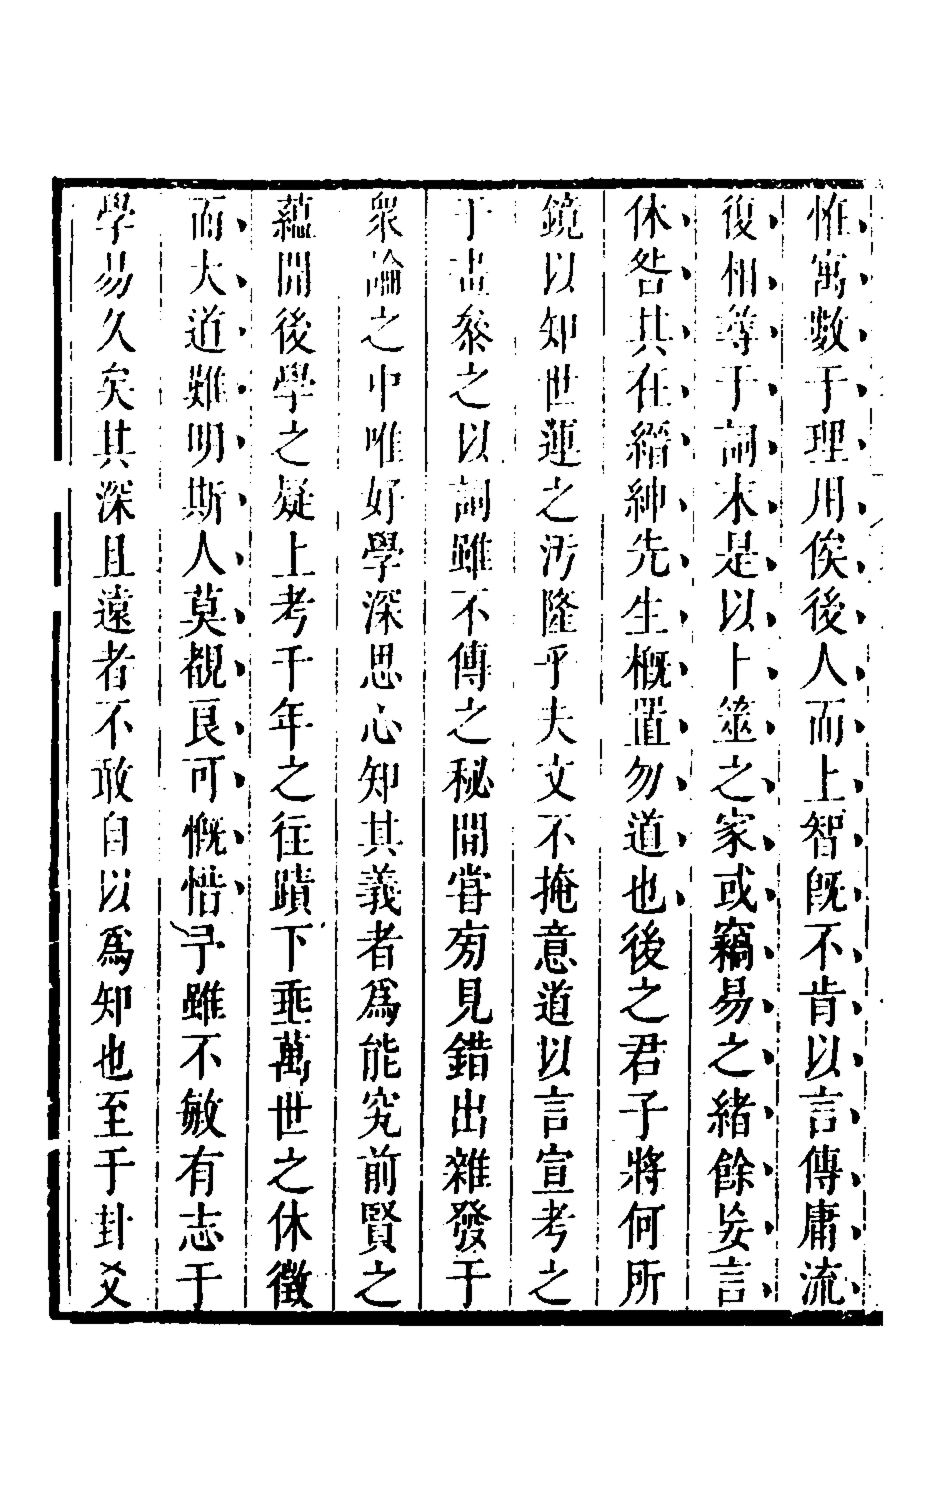 惟寓數于理用俟後人而上智既不肯以言傳庸流
復相尋于詞末是以卜筮之家或竊易之緒餘妄言
休咎其在縉紳先生槪置勿道也後之君子將何所
鏡以知世運之汚隆乎夫文不掩意道以言宣考之
于畫叅之以詞雖不傳之秘間嘗旁見錯出雜發于
衆論之中唯好學深思心知其義者爲能究前賢之
蘊開後學之疑上考千年之往蹟下垂萬世之休徵
而大道難明斯人莫覩良可慨惜予雖不敏有志于
學易久矣其深且遠者不敢自以爲知也至于卦爻